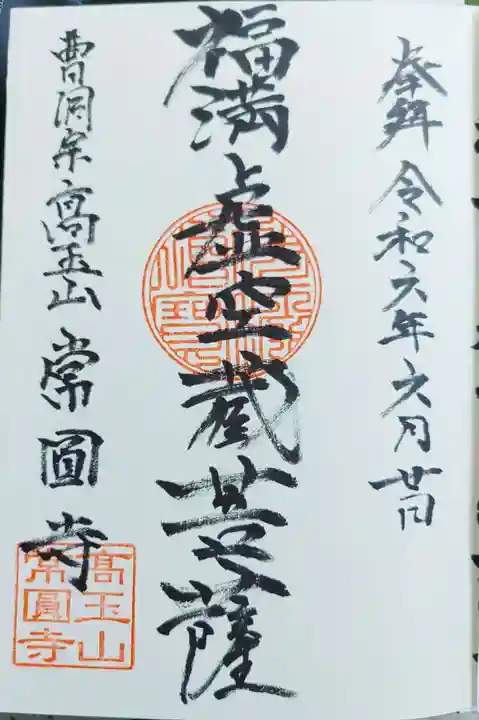 奉拝 令和六年六月廿日
福満虚空蔵菩薩
曹洞宗高玉山常圓寺
高玉山
常圓寺